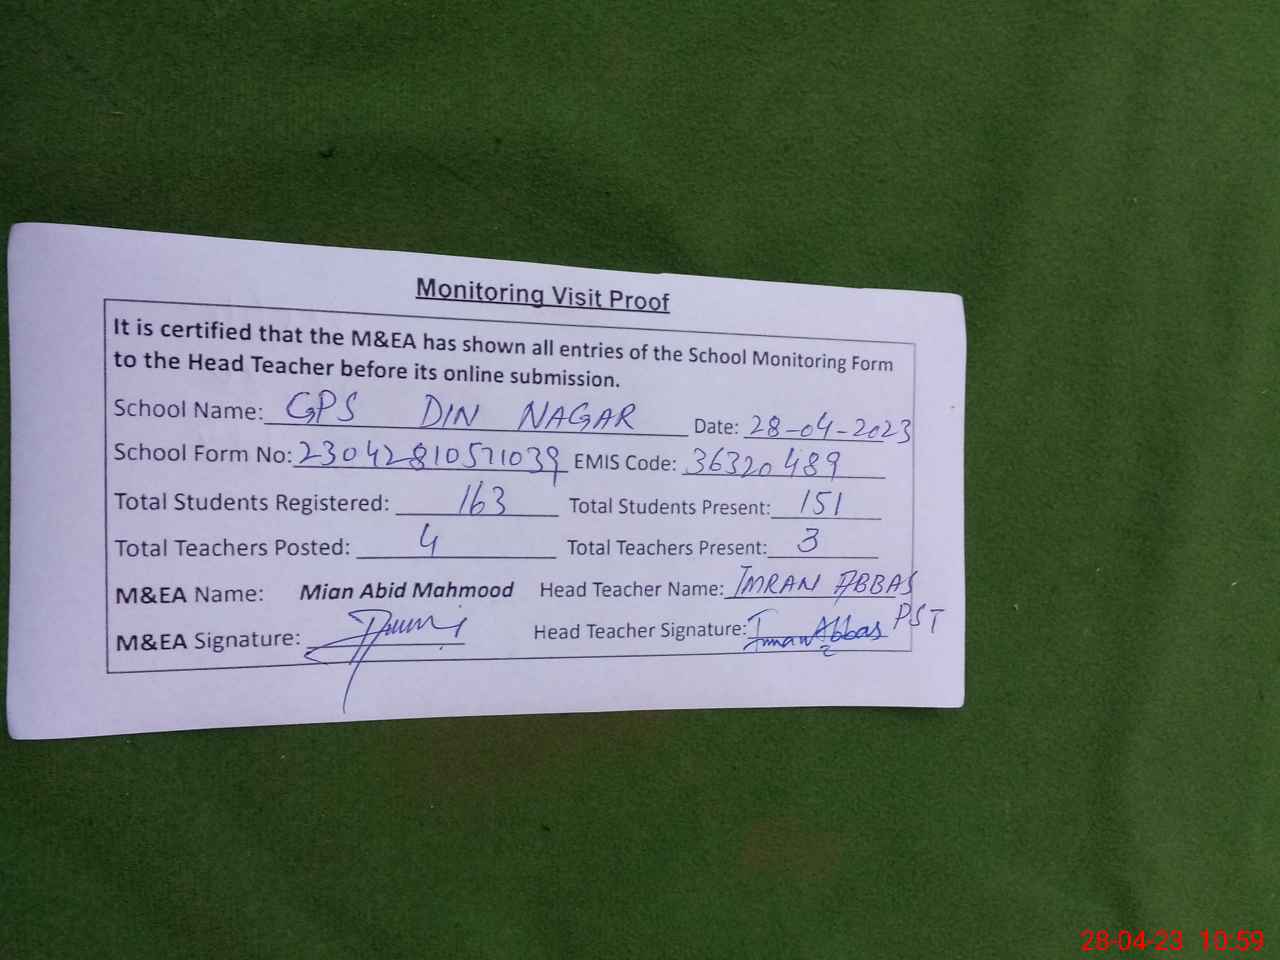 Monitoring Visit Proof
It is certified that the M&EA has shown all entries of the School Monitoring Form
to the Head Teacher before its online submission.
School Name: GPS DIN NAGAR Date: 28-04-2023
School Form No: 23042810571039 EMIS Code: 36320489
Total Students Registered: 163 Total Students Present: 151
Total Teachers Posted: 4 Total Teachers Present: 3
M&EA Name: Mian Abid Mahmood Head Teacher Name: IMRAN ABBAS
PST
M&EA Signature: Head Teacher Signature: Imran Abbas
28-04-23 10:59